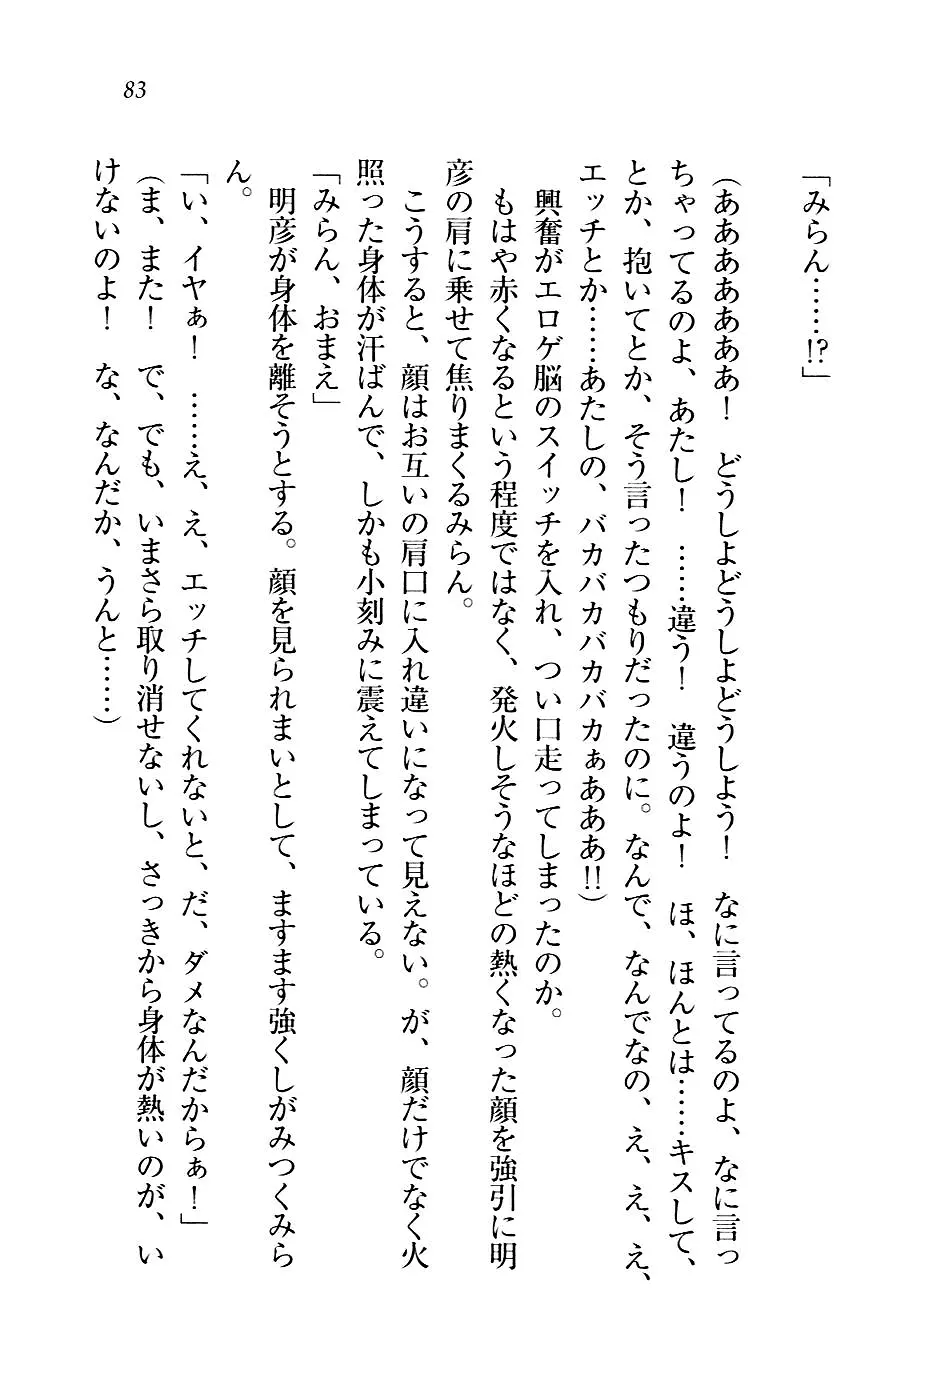 83
「みらん……!?」
（ああああああ！　どうしよどうしよどうしよう！　なに言ってるのよ、なに言っ
ちゃってるのよ、あたし！　……違う！　違うのよ！　ほ、ほんとは……キスして、
とか、抱いてとか、そう言ったつもりだったのに。なんで、なんでなの、え、え、え、
エッチとか……あたしの、バカバカバカバカぁあああ!!）
　興奮がエロゲ脳のスイッチを入れ、つい口走ってしまったのか。
　もはや赤くなるという程度ではなく、発火しそうなほどの熱くなった顔を強引に明
彦の肩に乗せて焦りまくるみらん。
　こうすると、顔はお互いの肩口に入れ違いになって見えない。が、顔だけでなく火
照った身体が汗ばんで、しかも小刻みに震えてしまっている。
「みらん、おまえ」
　明彦が身体を離そうとする。顔を見られまいとして、ますます強くしがみつくみら
ん。
「い、イヤぁ！　……え、え、エッチしてくれないと、だ、ダメなんだからぁ！」
（ま、また！　で、でも、いまさら取り消せないし、さっきから身体が熱いのが、い
けないのよ！　な、なんだか、うんと……）